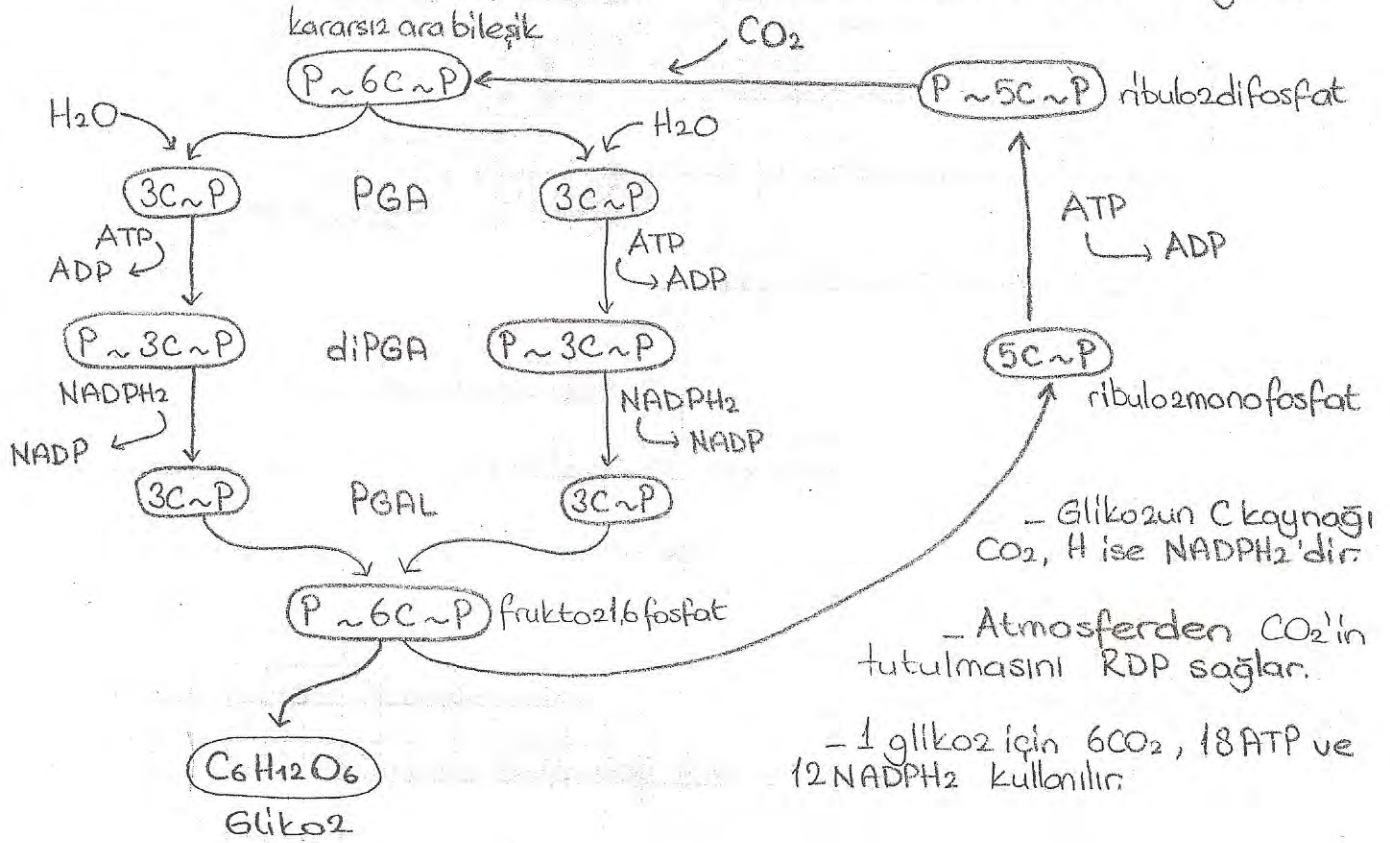 kararsız ara bileşik
CO₂
P~6C~P
P~5C~P ribulozdifosfat
H₂O
H₂O
3C~P
PGA
3C~P
ATP
ADP
ATP
ADP
ATP
ADP
P~3C~P
diPGA
P~3C~P
5C~P
ribulozmonofosfat
NADPH₂
NADP
NADPH₂
NADP
3C~P
PGAL
3C~P
P~6C~P fruktoz1,6fosfat
C₆H₁₂O₆
Glikoz
_ Glikozun C kaynağı
CO₂, H ise NADPH₂'dir.
_ Atmosferden CO₂'in
tutulmasını RDP sağlar.
_ 1 glikoz için 6CO₂, 18ATP ve
12NADPH₂ kullanılır.